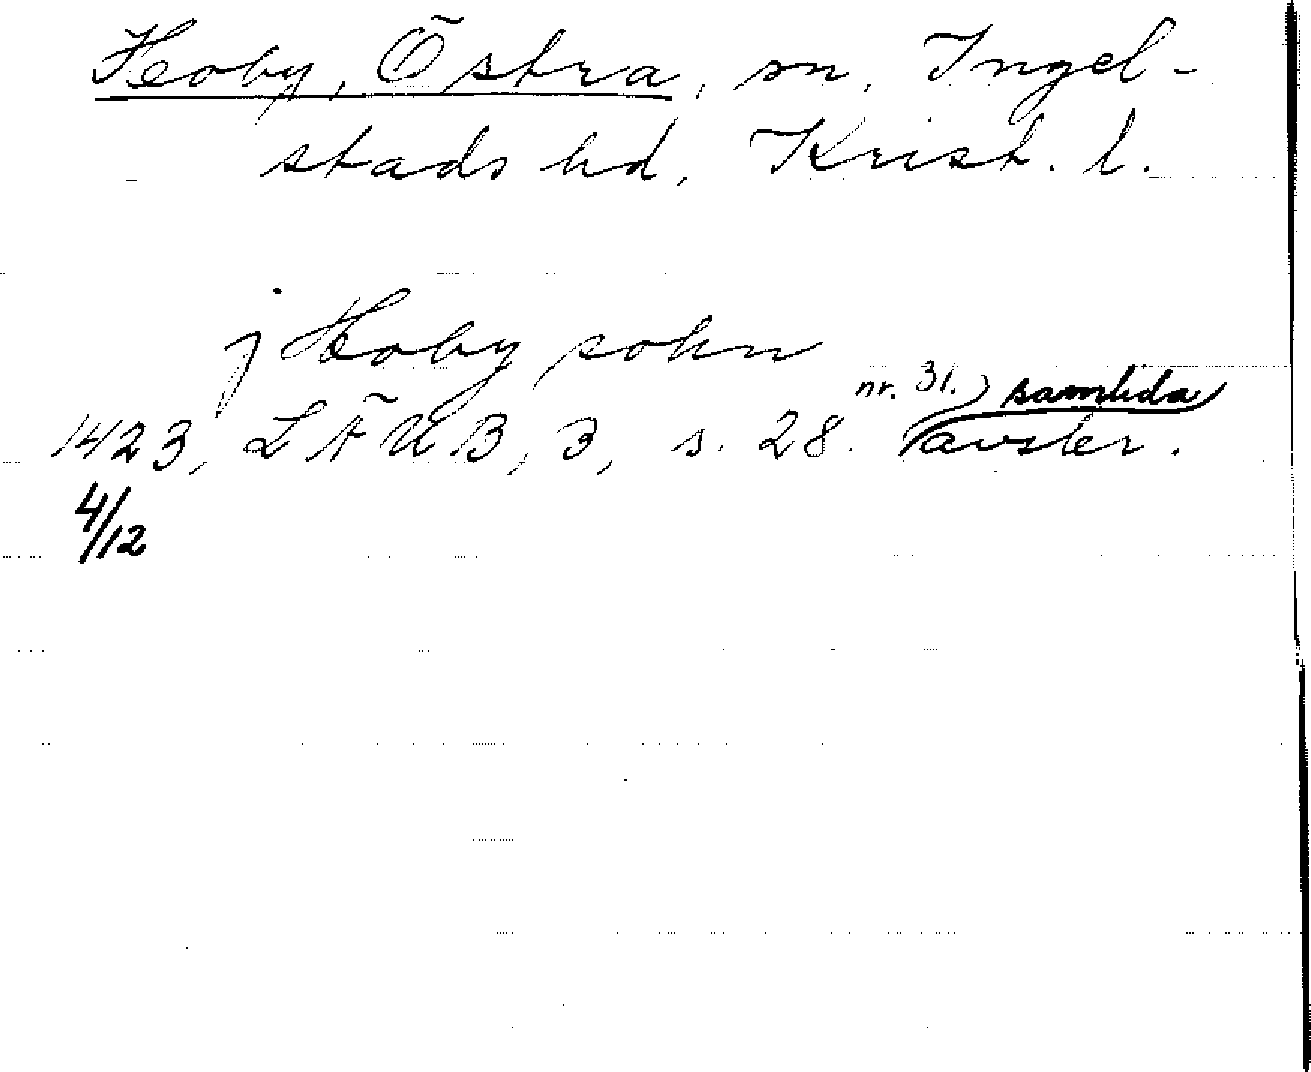 Hoby, Östra, sn, Ingel-
stads hd, Krist. l.
j Hoby sokn
1423, LÄUB, 3, s. 28. nr. 31.) samtida avskr.
4/12